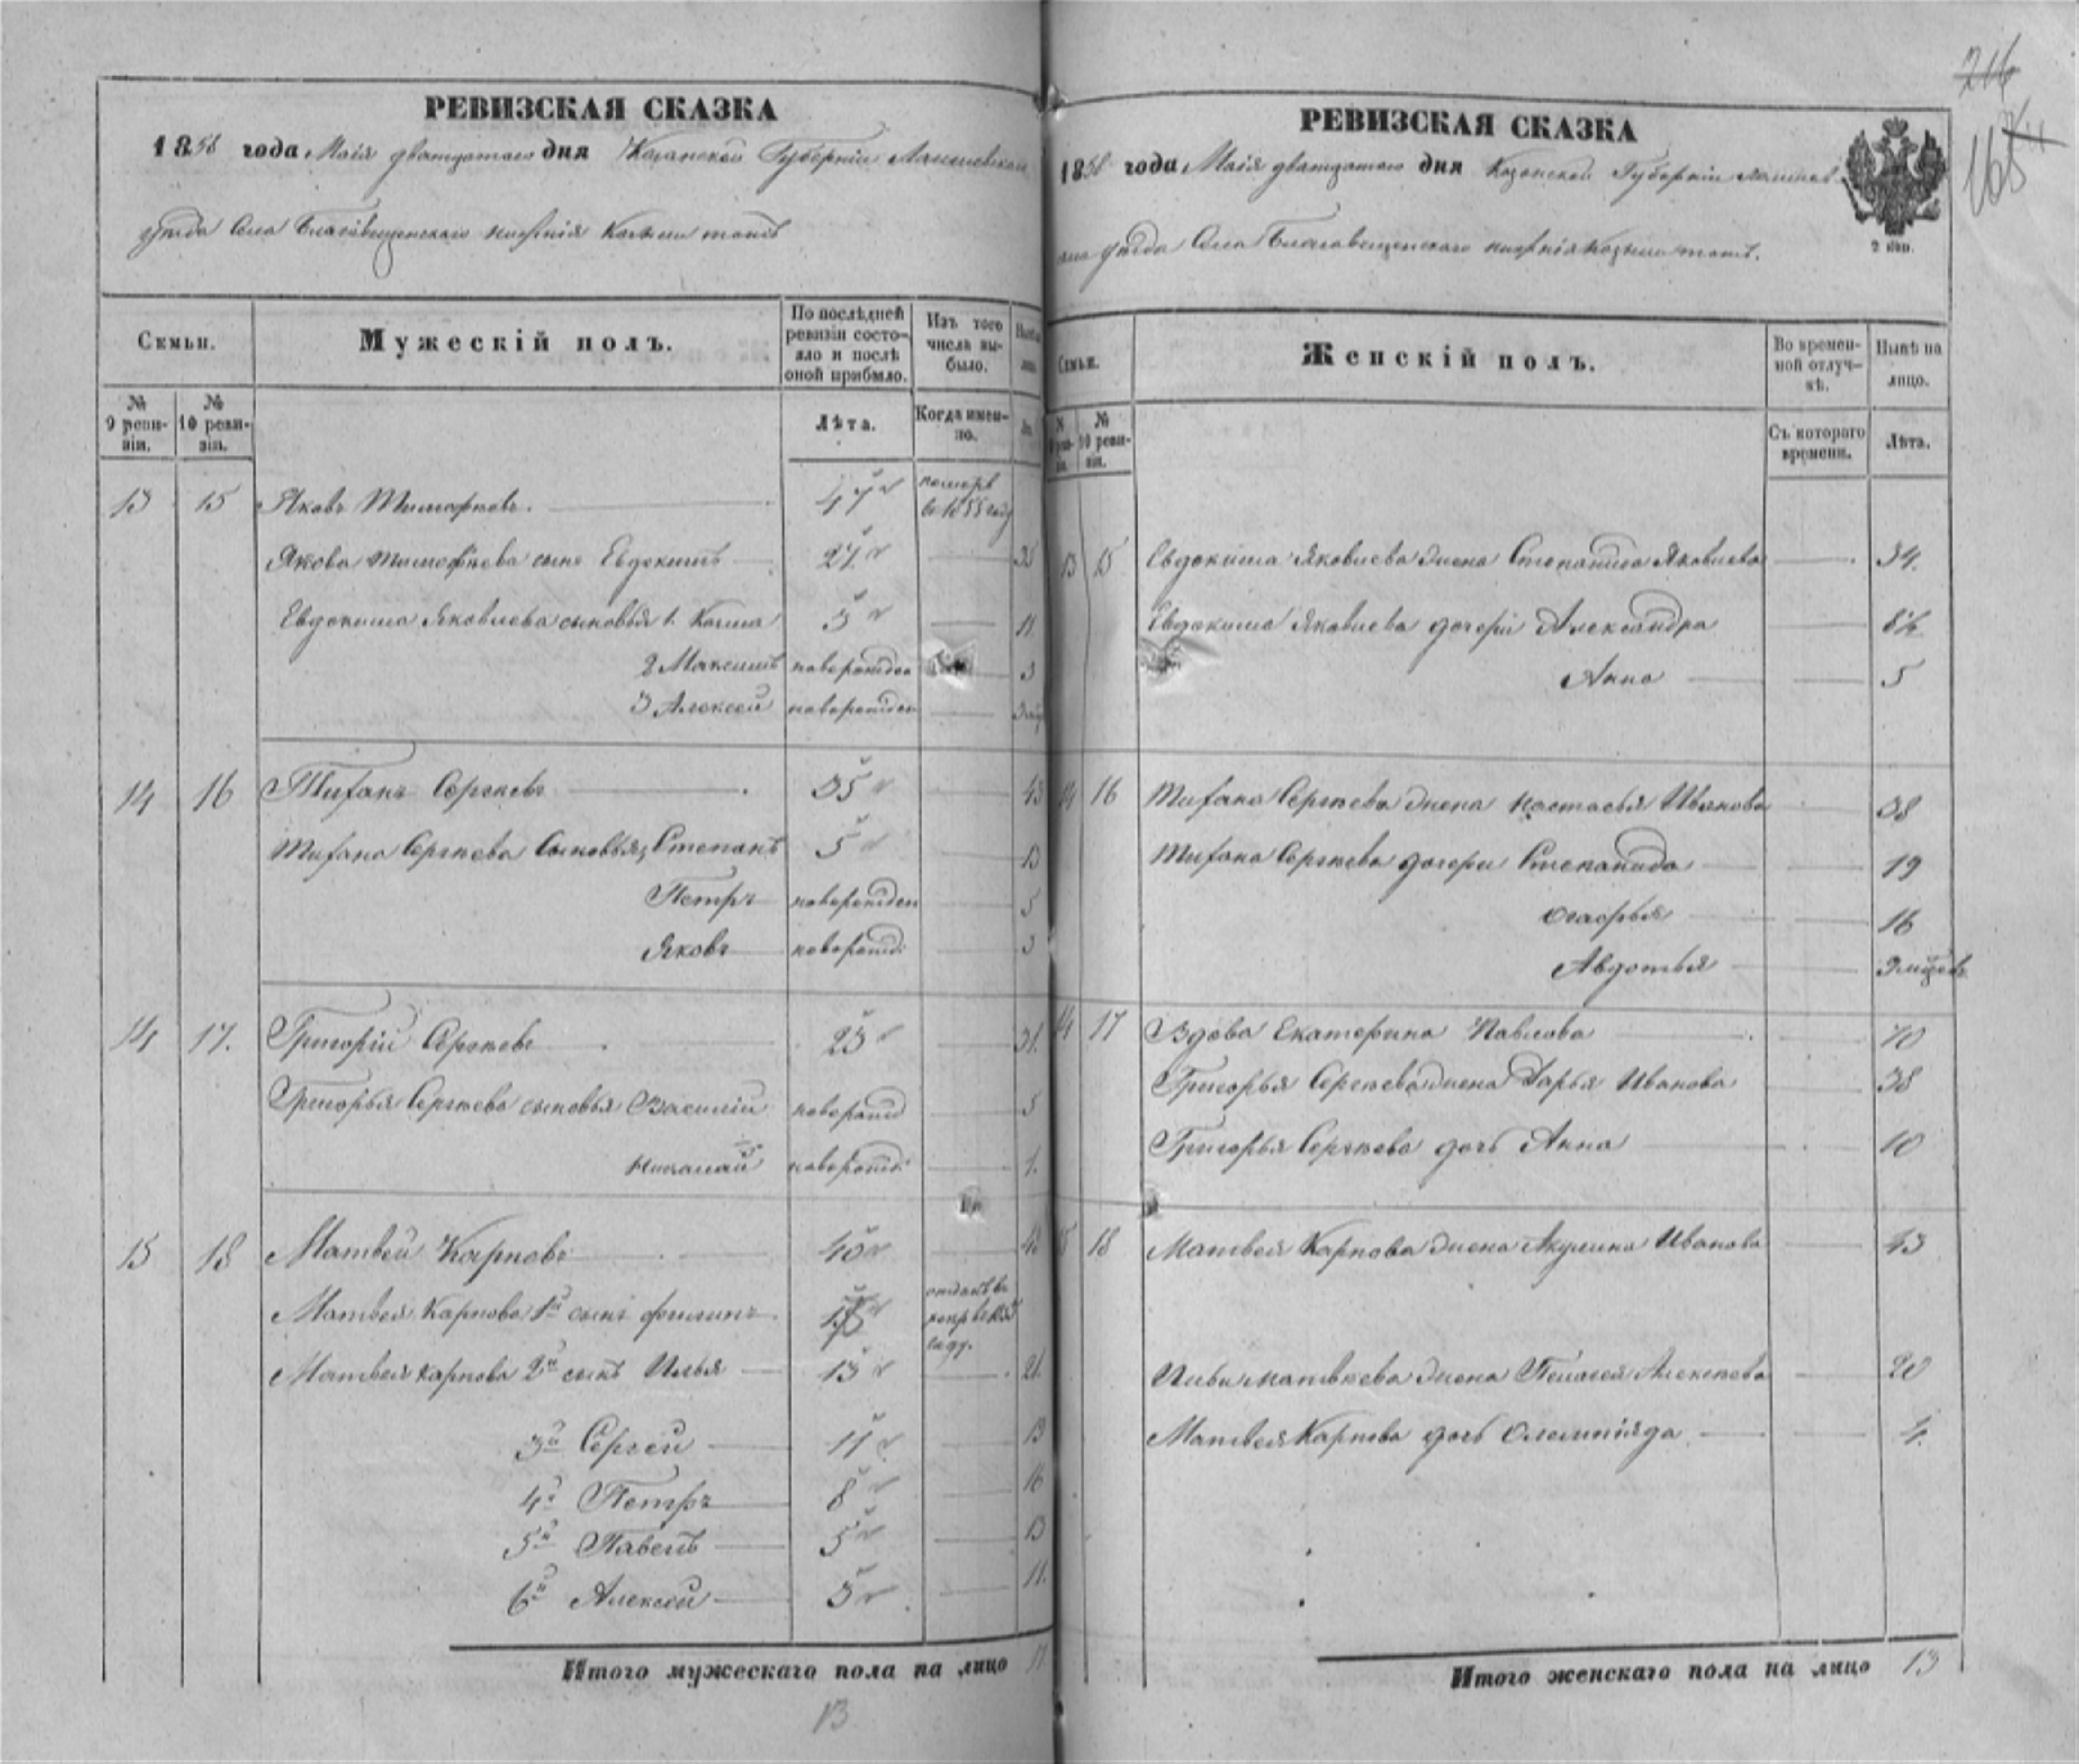 РЕВИЗСКАЯ СКАЗКА
1858 года Маія дватцатаго дня Казанской Губерніи Лаишевскаго
уѣзда Села Благовѣщенскаго нижнія тожъ
Семьи.
Мужескій полъ.
По послѣдней ревизіи состояло и послѣ оной прибыло.
Изъ того числа выбыло.
№ 9 ревизіи.
№ 10 ревизіи.
Лѣта.
Когда именно.
13 15 Яковъ Тимофѣевъ. 47 померъ в 1855 году
Якова Тимофѣева сынъ Евдокимъ 27 35
Евдокима Яковлева сыновья 1. Козма 3 11
2 Максимъ новорожден 3
3 Алексей новорожден
14 16 Тифанъ Сергѣевъ 35 43
Тифана Сергѣева Сыновья, Степанъ 5 13
Петръ новорожден 5
Яковъ новорожд. 3
14 17. Григорій Сергѣевъ 23 31.
Григорья Сергѣева сыновья Василій новорожд 5
Николай новорожд. 1.
15 18 Матвей Карповъ 40
Матвея Карпова 1й сынъ Филипъ отданъ в рекр в году.
Матвея Карпова 2й сынъ Илья 13 21.
3й Сергей 11
4й Петръ 8 16
5й Павелъ 5 13
6й Алексей 3 11.
Итого мужескаго пола на лицо
13
216
165
РЕВИЗСКАЯ СКАЗКА
1858 года Маія дватцатаго дня Казанской Губерніи Лаишев
ска уѣзда Села Благовещенскаго нижнія тожъ.
2 коп.
Семьи.
Женскій полъ.
Во временной отлучкѣ.
Нынѣ на лицо.
№ 10 ревизіи.
Съ котораго времени.
Лѣта.
13 15 Евдокима Яковлева жена Степанида Яковлева 34.
Евдокима Яковлева дочери Александра 8½
Анна 5
14 16 Тифана Сергѣева жена Настасья Иванова 38
Тифана Сергѣева дочери Степанида 19
16
Авдотья
14 17 Вдова Екатерина Павлова 70
Григорья Сергѣева жена Дарья Иванова 38
Григорья Сергѣева дочь Анна 10
15 18 Матвея Карпова жена Акулина Иванова 43
Ильи Матвѣева жена Пелагея Алексѣева 20
Матвея Карпова дочь Олимпіяда 4.
Итого женскаго пола на лицо 13